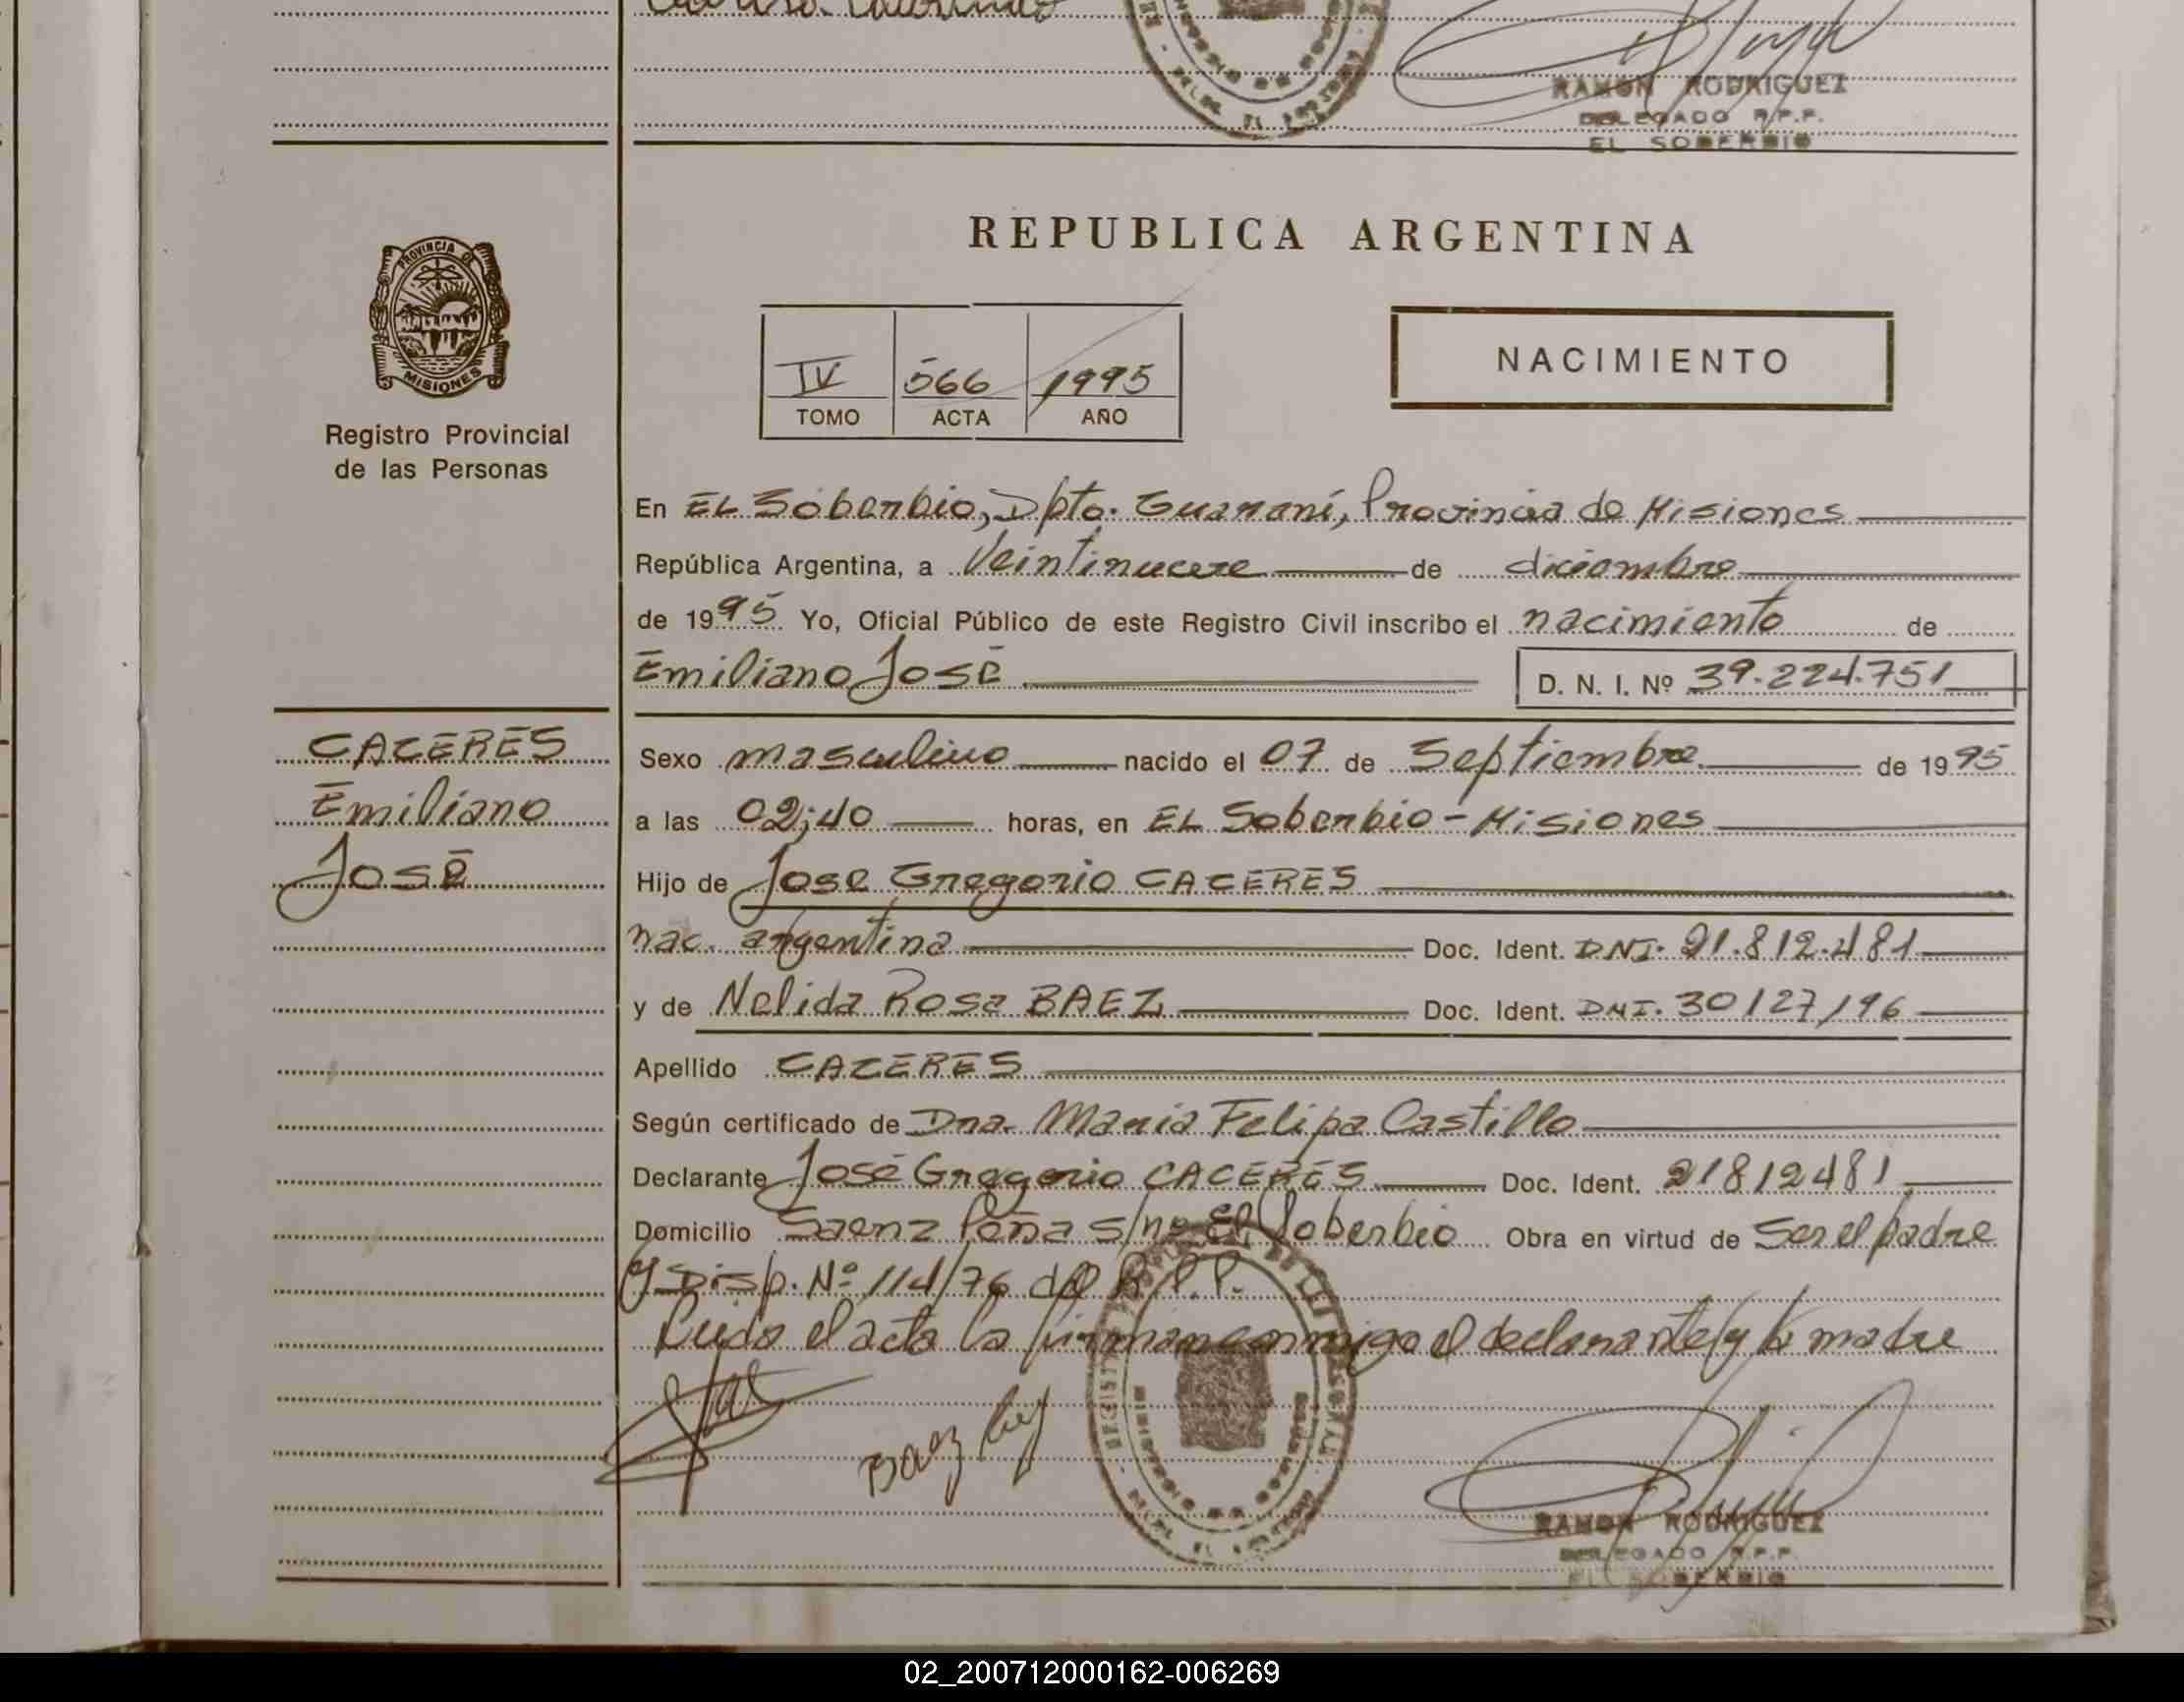 RAMON RODRIGUEZ
DELEGADO R.P.P.
EL SOBERBIO
PROVINCIA DE
MISIONES
Registro Provincial
de las Personas
REPUBLICA ARGENTINA
IV 566 1995
TOMO ACTA AÑO
NACIMIENTO
En EL Soberbio, Dpto. Guaraní, Provincia de Misiones
República Argentina, a Veintinueve de diciembre
de 1995 Yo, Oficial Público de este Registro Civil inscribo el nacimiento de
Emiliano José D. N. I. Nº 39.224.751
CACERES
Emiliano
José
Sexo masculino nacido el 07 de Septiembre de 1995
a las 02;40 horas, en EL Soberbio - Misiones
Hijo de Jose Gregorio CACERES
nac. argentina Doc. Ident. DNI. 21.812.481
y de Nelida Rosa BAEZ Doc. Ident. DNI. 30127196
Apellido CACERES
Según certificado de Dna. Maria Felipa Castillo
Declarante José Gregorio CACERES Doc. Ident. 21812481
Domicilio Saenz Peña s/nº El Soberbio Obra en virtud de Ser el padre
y Disp. Nº 114/76 del R.P.P.
Leida el acta la firman conmigo el declarante y la madre
Baez
RAMON RODRIGUEZ
DELEGADO R.P.P.
EL SOBERBIO
02_200712000162-006269